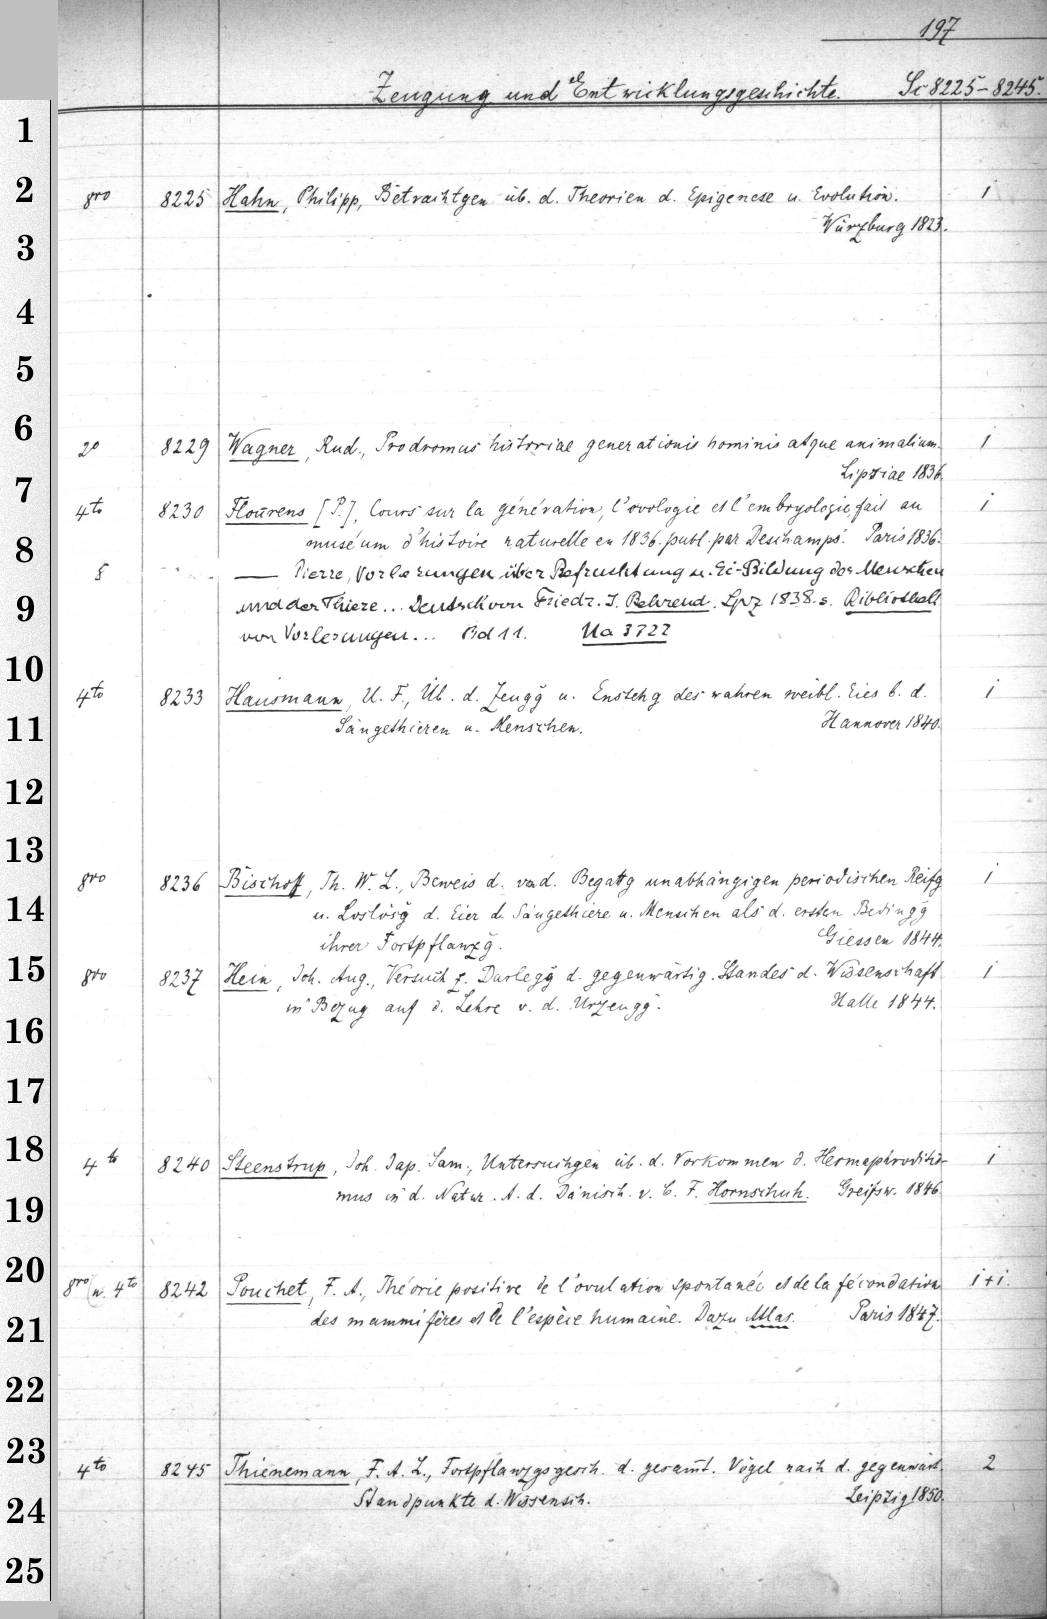 197
Zeugung und Entwicklungsgeschichte. Sc 8225-8245.
1
2 8vo 8225 Hahn, Philipp, Betrachtgen üb. d. Theorien d. Epigenese u. Evolution. 1
Würzburg 1823.
3
4
5
6 2o 8229 Wagner, Rud., Prodromus historiae generationis hominis atque animalium. 1
Lipsiae 1836.
7 4to 8230 Flourens [P.], Cours sur la génération, l'ovologie et l'embryologie, fait au 1
8 muséum d'histoire naturelle en 1836. publ. par Deschamps. Paris 1836.
8 — Pierre, Vorlesungen über Befruchtung u. Ei-Bildung des Menschen
9 und der Thiere... Deutsch von Friedr. J. Behrend. Lpz 1838. s. Bibliothek
von Vorlesungen... Bd 11. Ua 3722
10
4to 8233 Hausmann, U. F., Üb. d. Zeugg u. Enstehg des wahren weibl. Eies b. d. 1
11 Säugethieren u. Menschen. Hannover 1840.
12
13
8vo 8236 Bischoff, Th. W. L., Beweis d. v. d. Begattg unabhängigen periodischen Reifg 1
14 u. Loslösg d. Eier d. Säugethiere u. Menschen als d. ersten Bedingg
ihrer Fortpflanzg. Giessen 1844.
15 8vo 8237 Hein, Joh. Aug., Versuch z. Darlegg d. gegenwärtig. Standes d. Wissenschaft 1
in Bezug auf d. Lehre v. d. Urzeugg. Halle 1844.
16
17
18 4to 8240 Steenstrup, Joh. Jap. Sam., Untersuchgen üb. d. Vorkommen d. Hermaphroditis- 1
19 mus in d. Natur. A. d. Dänisch. v. C. F. Hornschuh. Greifsw. 1846.
20 8vo (u. 4to 8242 Pouchet, F. A., Théorie positive de l'ovulation spontanée et de la fécondation 1+1.
21 des mammifères et de l'espèce humaine. Dazu Atlas. Paris 1847.
22
23
4to 8245 Thienemann, F. A. L., Fortpflanzgsgesch. d. gesamt. Vögel nach d. gegenwärt. 2
24 Standpunkte d. Wissensch. Leipzig 1850.
25